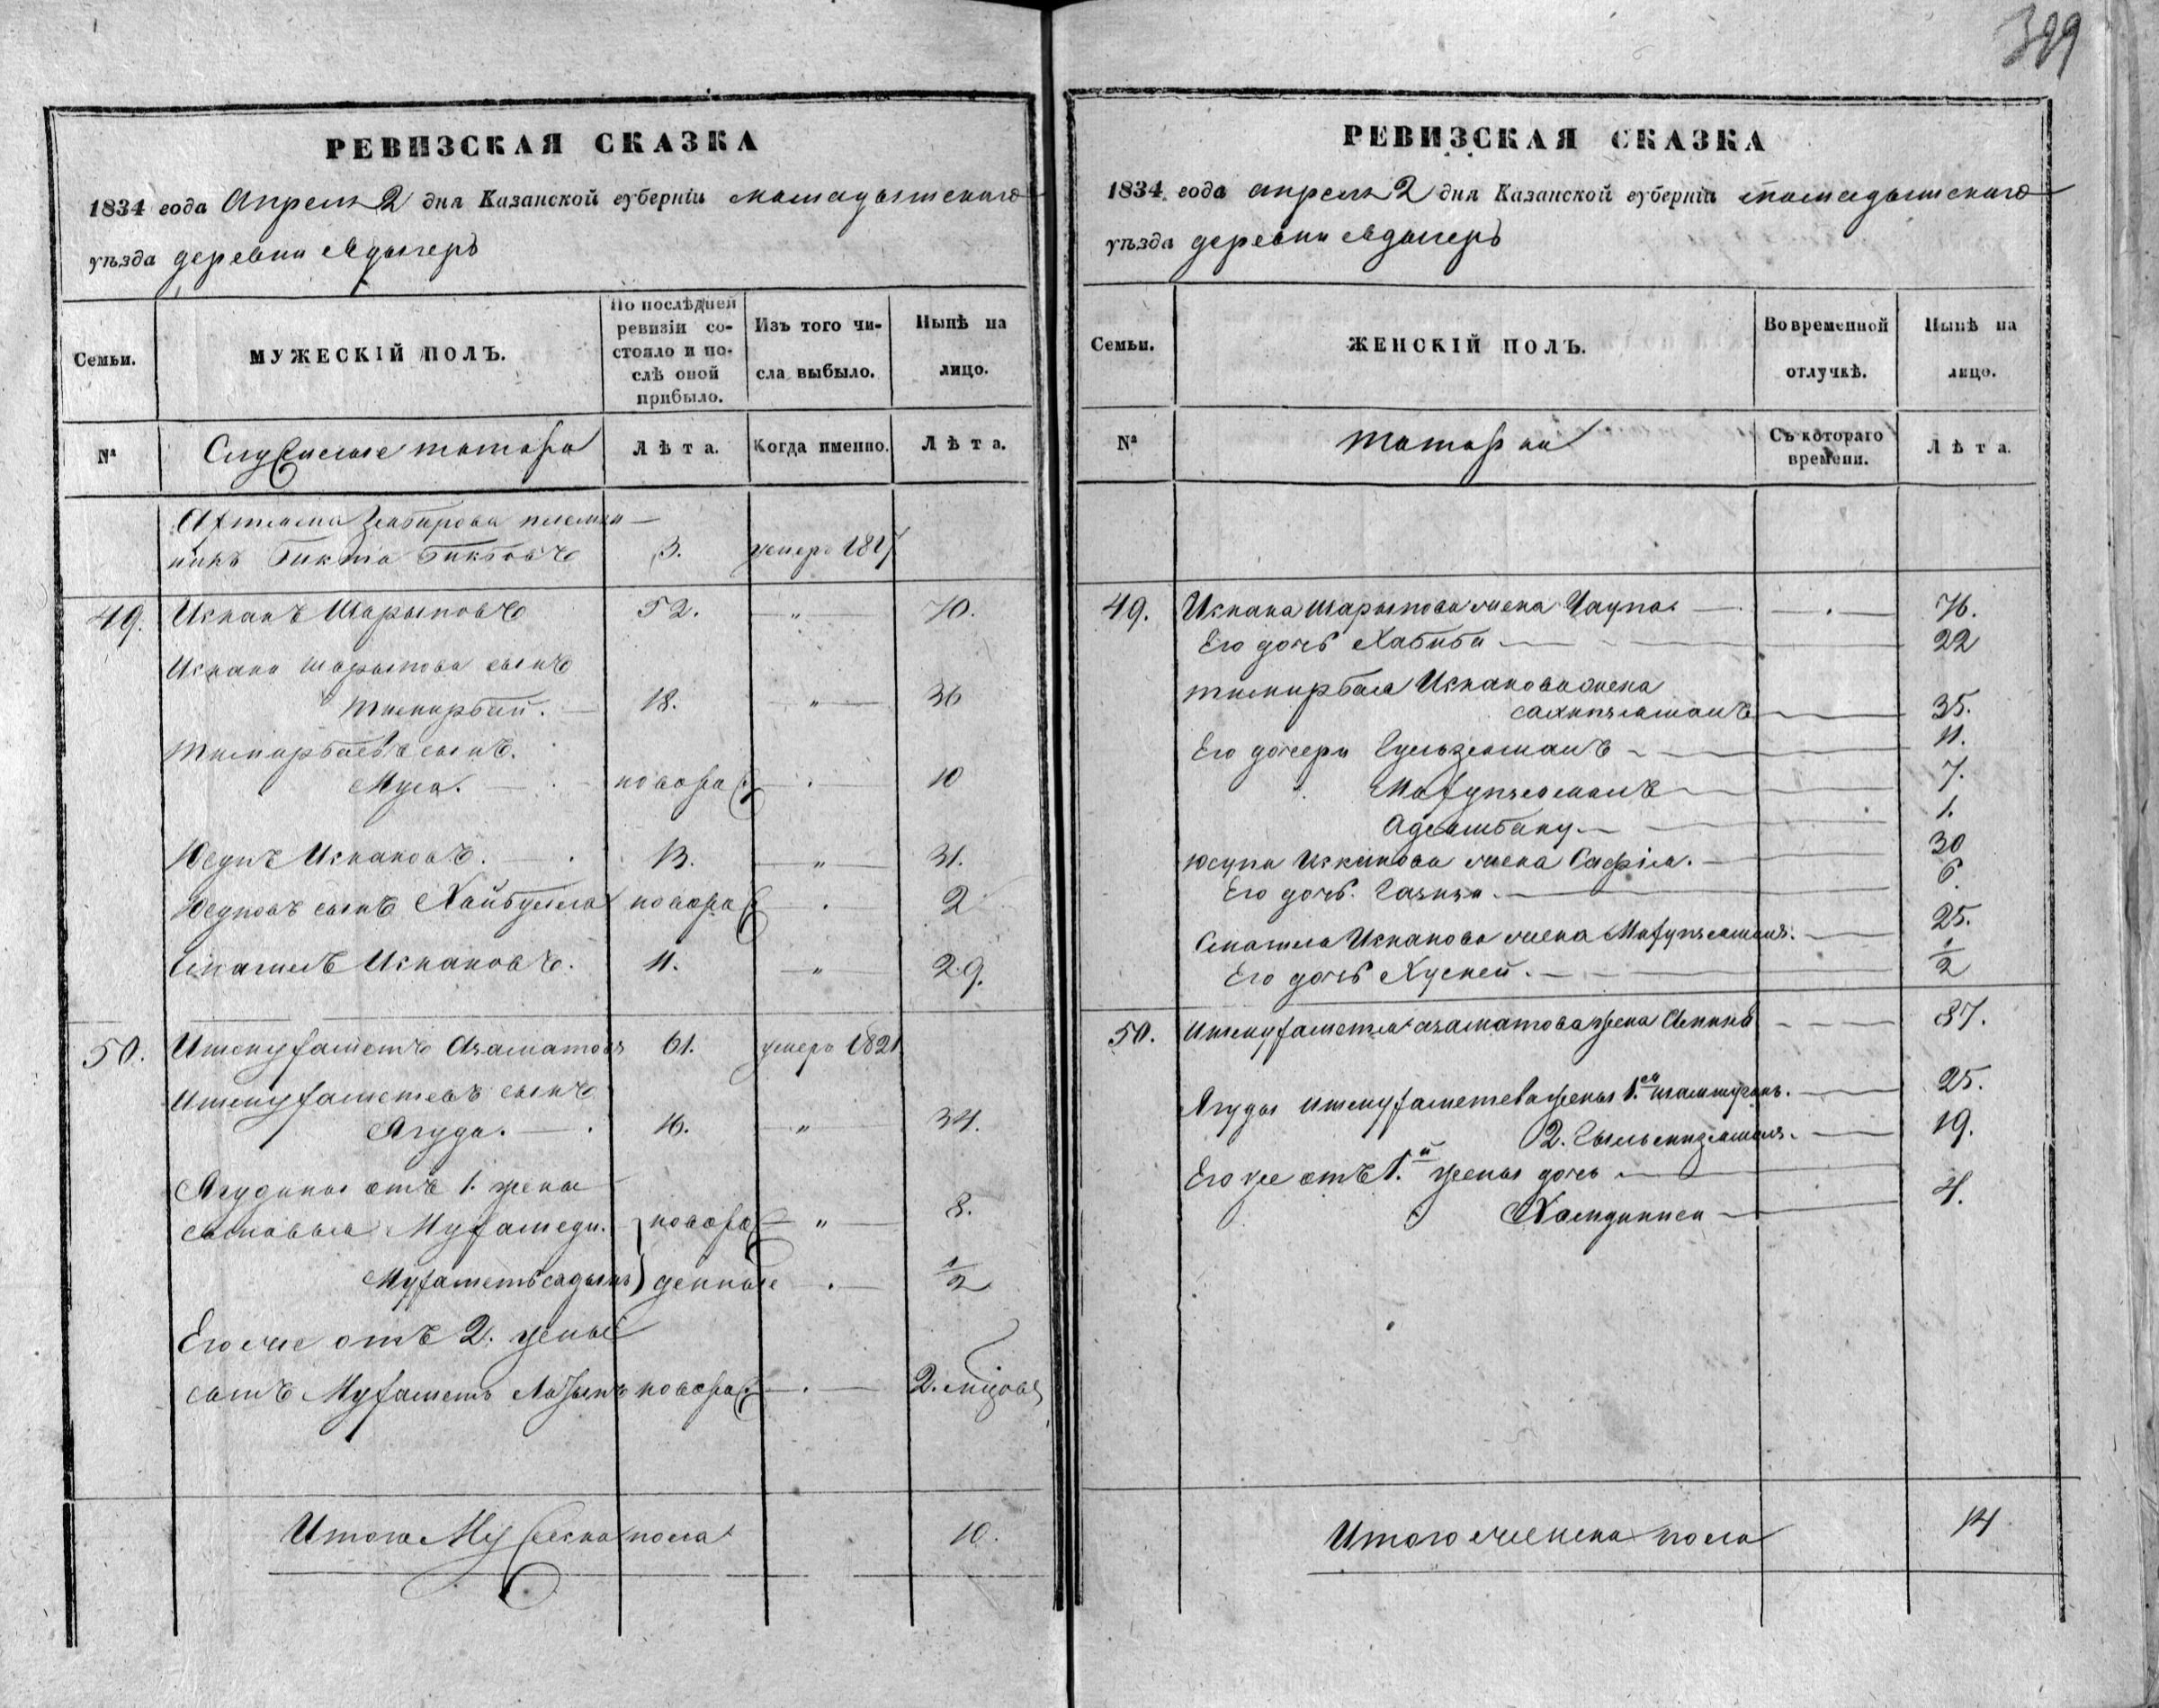 399
РЕВИЗСКАЯ СКАЗКА
1834 года Апреля 2 дня Казанской губерніи мамадышскаго
уѣзда деревни Адыгеръ
Семьи.
МУЖЕСКІЙ ПОЛЪ.
По послѣдней ревизіи состояло и послѣ оной прибыло.
Изъ того числа выбыло.
Нынѣ на лицо.
№
Служилые татара
Лѣта.
Когда именно.
Лѣта.
племян
никъ Бикта Биктовъ 3. умеръ 1817
49. Искакъ Шарыповъ 52. " 70.
Искака Шарыпова сынъ
Тимирбай. 18. " 36
Тимирбаевъ сынъ.
Муса. новорож 10
Юсупъ Искаковъ. 13. " 31.
Юсуповъ сынъ Хайбулла новорож 2
Смагилъ Искаковъ. 11. " 29.
50. Ишмухаметъ Азаматовъ 61. умеръ 1821
Ишмухаметевъ сынъ
Ягуда. 16. " 34.
Ягудины отъ 1. жены
сыновья Мухамеди. новорож " 8.
Мухаметьсадыкъ денные 1/2
Его же отъ 2. жены
сынъ Мухаметь новорож 2. мѣсяцовъ
Итого Мужеска пола 10.
РЕВИЗСКАЯ СКАЗКА
1834 года апреля 2 дня Казанской губерніи мамадышскаго
уѣзда деревни Адыгеръ
Семьи.
ЖЕНСКІЙ ПОЛЪ.
Во временной отлучкѣ.
Нынѣ на лицо.
№
Татарки
Съ котораго времени.
Лѣта.
49. Искака Шарыпова жена 76.
Его дочь Хабиба 22
Тимирбая Искакова жена
35.
Его дочери Гульзямалъ 11.
Махупзямалъ 7.
7.
1.
Юсупа Искакова жена Сафія. 30
Его дочь. 6.
Смагила Искакова жена Махупзямалъ. 25.
Его дочь Хусней. 1/2
50. Ишмухаметя Азаматова жена 87.
Ягуды Ишмухаметева жены 1.ая 25.
2. 19.
Его же отъ 1.й жены дочь
Хамдиниса 4.
Итого женска пола 14